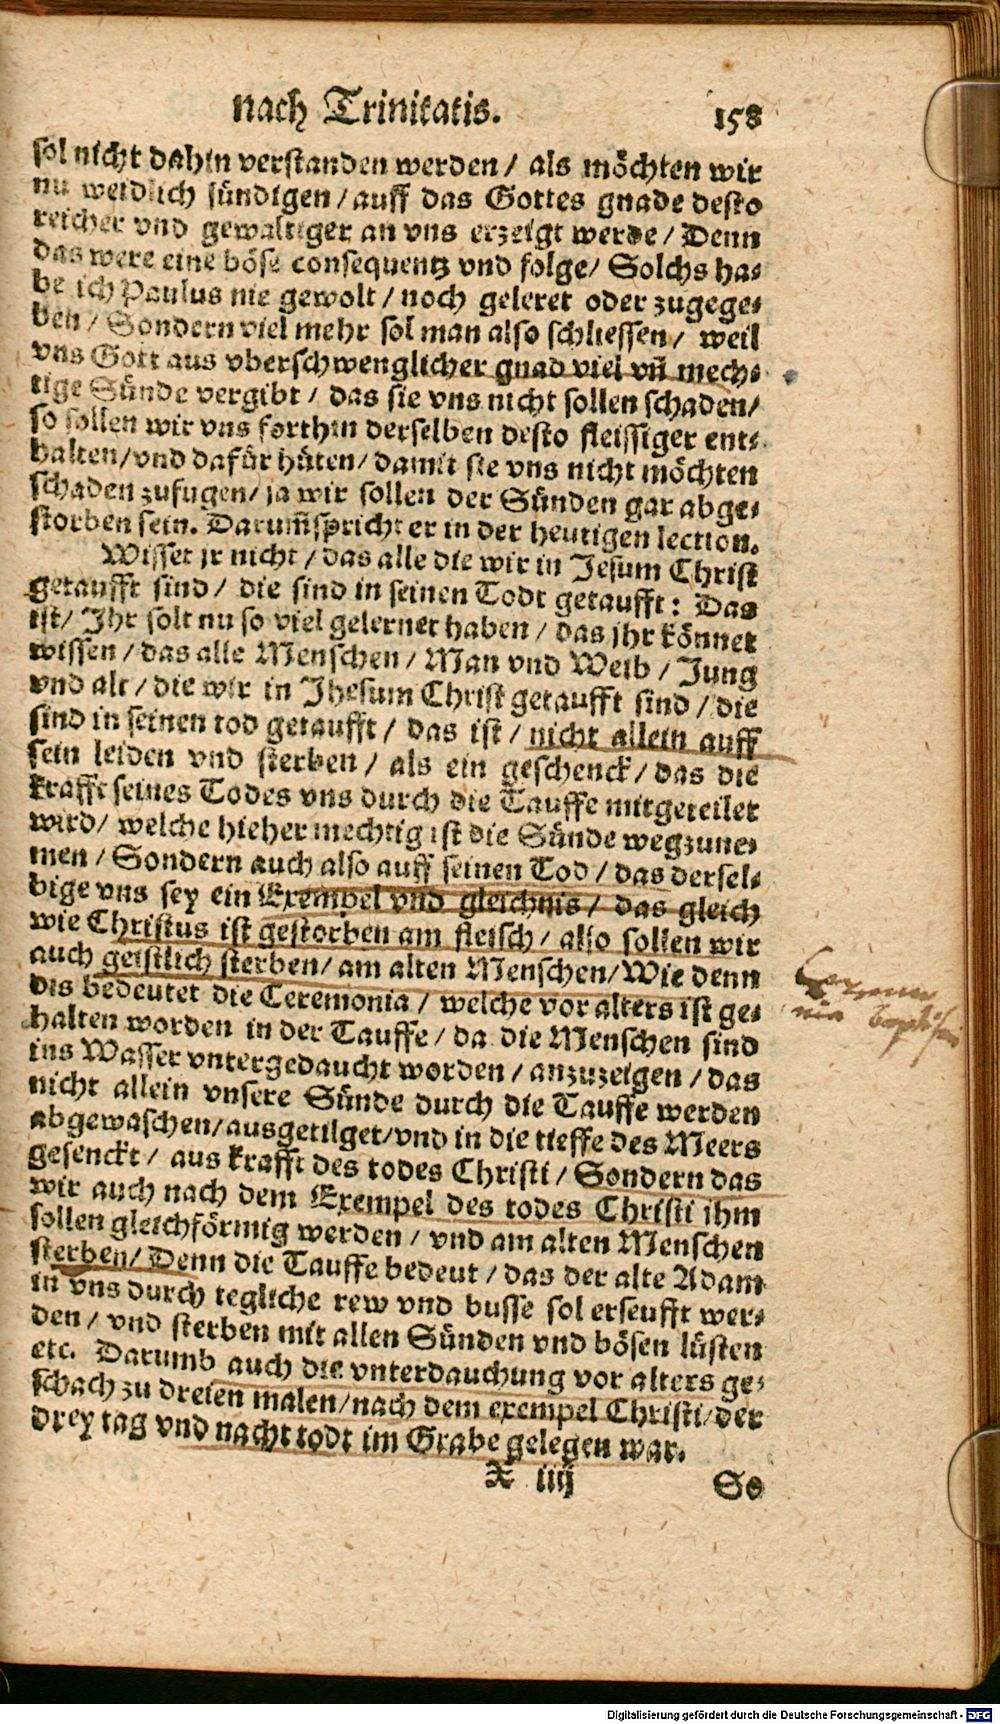 nach Trinitatis. 158
sol nicht dahin verstanden werden / als möchten wir
nu weidlich sündigen / auff das Gottes gnade desto
reicher vnd gewaltiger an vns erzeigt werde / Denn
das were eine böse consequentz vnd folge / Solchs ha⸗
be ich Paulus nie gewolt / noch geleret oder zugege⸗
ben / Sondern viel mehr sol man also schliessen / weil
vns Gott aus vberschwenglicher gnad viel vñ mech⸗
tige Sünde vergibt / das sie vns nicht sollen schaden /
so sollen wir vns forthin derselben desto fleissiger ent⸗
halten / vnd dafür hüten / damit sie vns nicht möchten
schaden zufugen / ja wir sollen der Sünden gar abge⸗
storben sein. Darum̃ spricht er in der heutigen lection.
Wisset jr nicht / das alle die wir in Jesum Christ
getaufft sind / die sind in seinen Todt getaufft: Das
ist / Ihr solt nu so viel gelernet haben / das jhr könnet
wissen / das alle Menschen / Man vnd Weib / Jung
vnd alt / die wir in Jhesum Christ getaufft sind / die
sind in seinen tod getaufft / das ist / nicht allein auff
sein leiden vnd sterben / als ein geschenck / das die
krafft seines Todes vns durch die Tauffe mitgeteilet
wird / welche hieher mechtig ist die Sünde wegzune⸗
men / Sondern auch also auff seinen Tod / das dersel⸗
bige vns sey ein Exempel vnd gleichnis / das gleich
wie Christus ist gestorben am fleisch / also sollen wir
auch geistlich sterben / am alten Menschen / Wie denn
dis bedeutet die Ceremonia / welche vor alters ist ge⸗
halten worden in der Tauffe / da die Menschen sind
ins Wasser vntergedaucht worden / anzuzeigen / das
nicht allein vnsere Sünde durch die Tauffe werden
abgewaschen / ausgetilget / vnd in die tieffe des Meers
gesenckt / aus krafft des todes Christi / Sondern das
wir auch nach dem Exempel des todes Christi ihm
sollen gleichförmig werden / vnd am alten Menschen
sterben / Denn die Tauffe bedeut / das der alte Adam
in vns durch tegliche rew vnd busse sol erseufft wer⸗
den / vnd sterben mit allen Sünden vnd bösen lüsten
etc. Darumb auch die vnterdauchung vor alters ge⸗
schach zu dreien malen / nach dem exempel Christi / der
drey tag vnd nacht todt im Grabe gelegen war.
X iiij So
Ceremo
nia baptismi
Digitalisierung gefördert durch die Deutsche Forschungsgemeinschaft - DFG